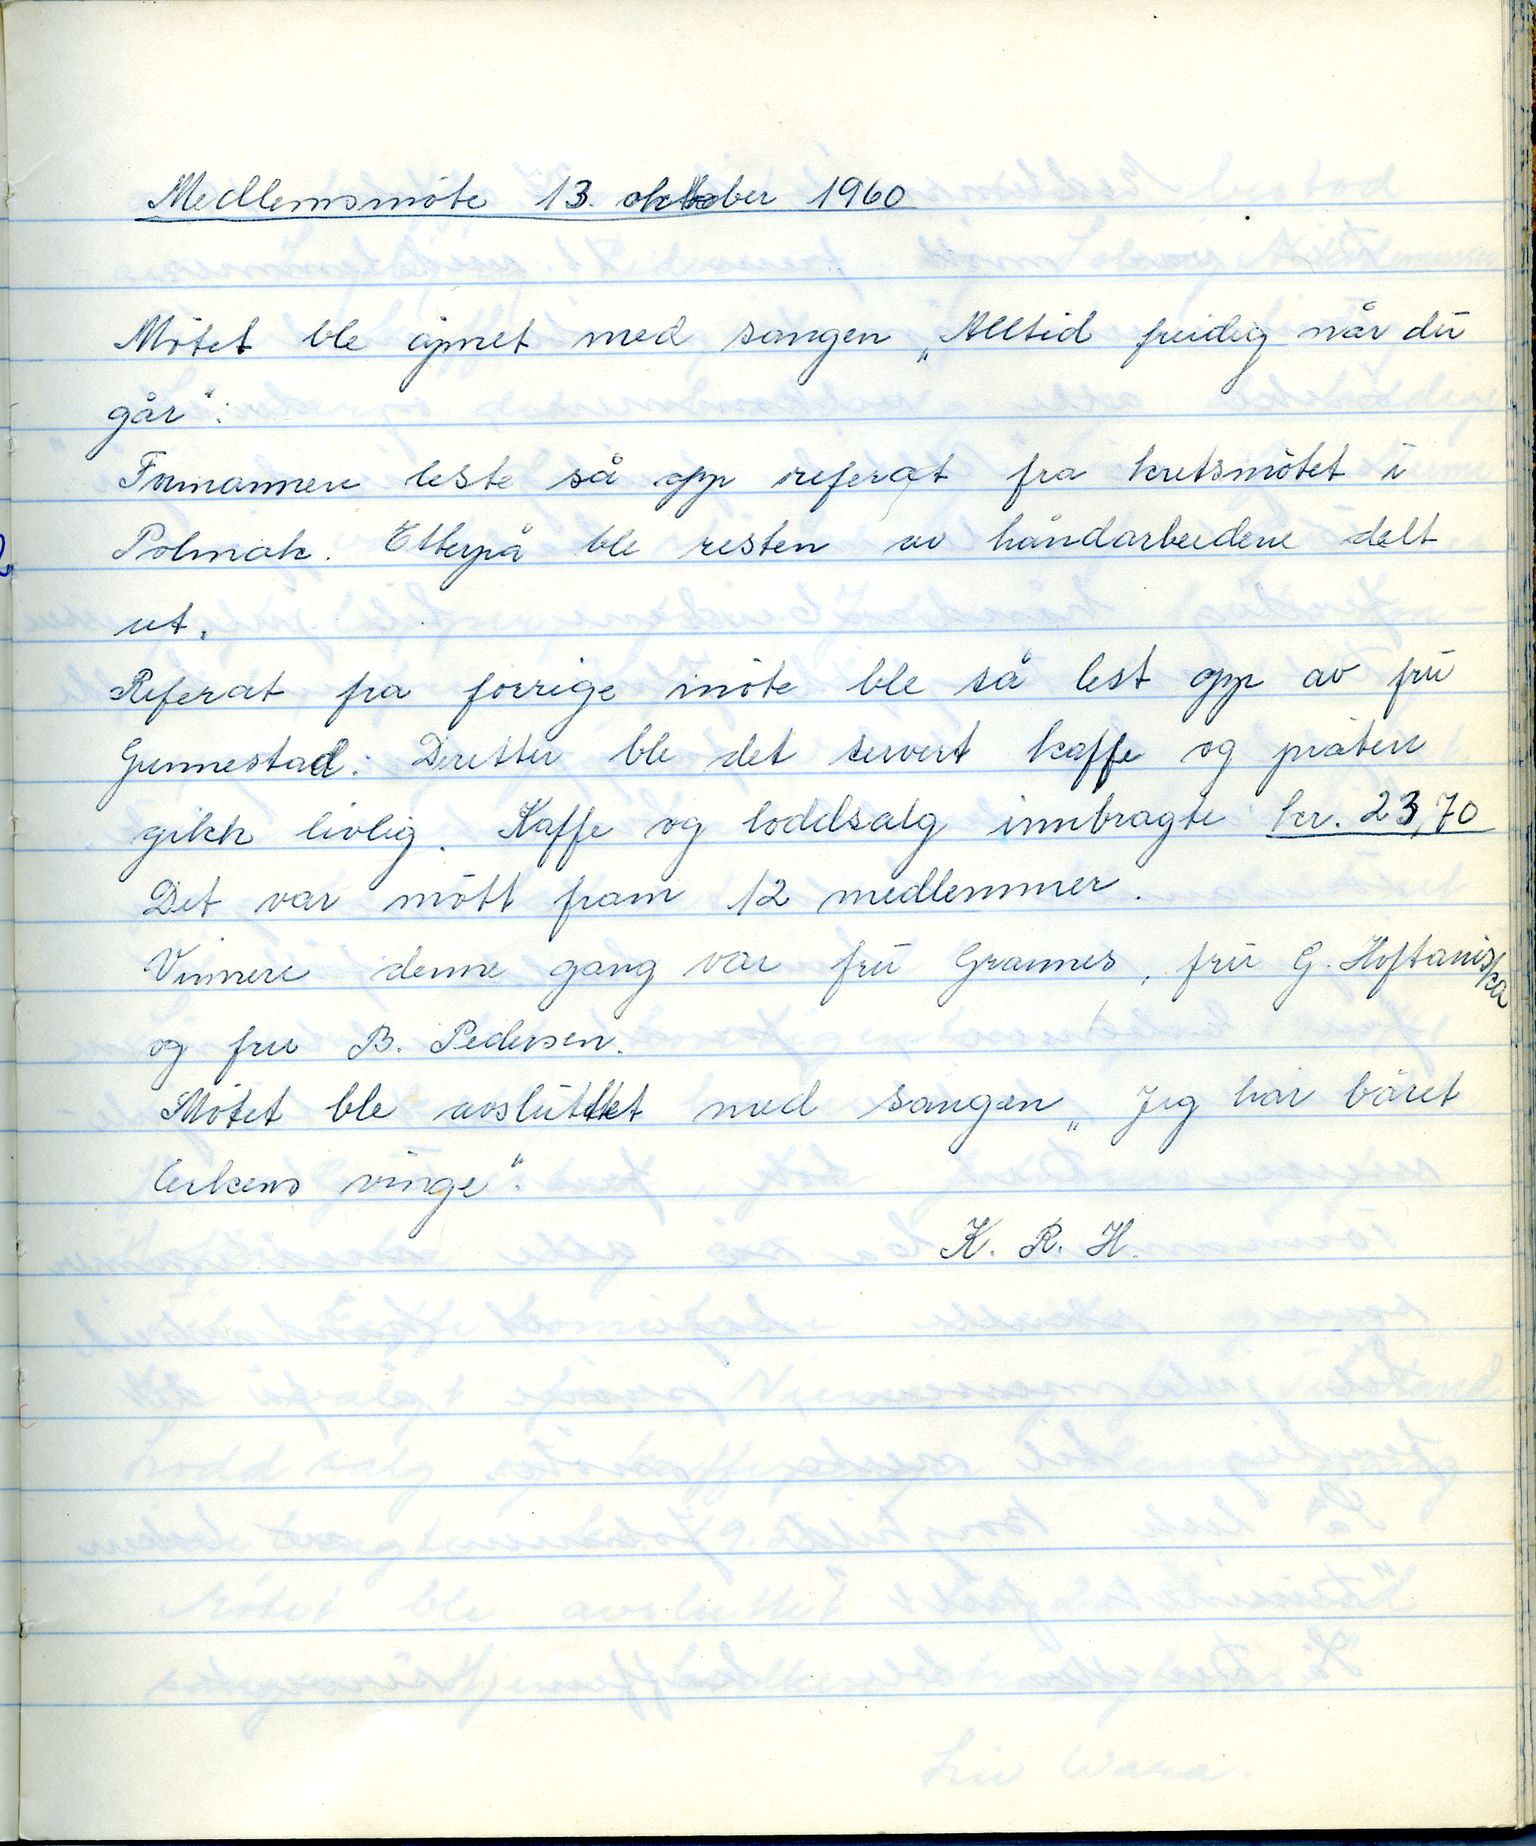 Medlemsmöte 13. oktober 1960
Mötet ble åpnet med sangen „Alltid freidig når du
går".
Formannen leste så opp referat fra kretsmötet i
Polmak. Etterpå ble resten av håndarbeidene delt
ut.
Referat fra forrige möte ble så lest opp av fru
Gunnestad. Deretter ble det servert kaffe og praten
gikk livlig. Kaffe og loddsalg innbragte kr. 23,70
Det var mött fram 12 medlemmer.
Vinnere denne gang var fru Grannes, fru G. Hoftaniska
og fru B. Pedersen.
Mötet ble avsluttet med sangen „Jeg har båret
lerkens vinge".
K. R. H.